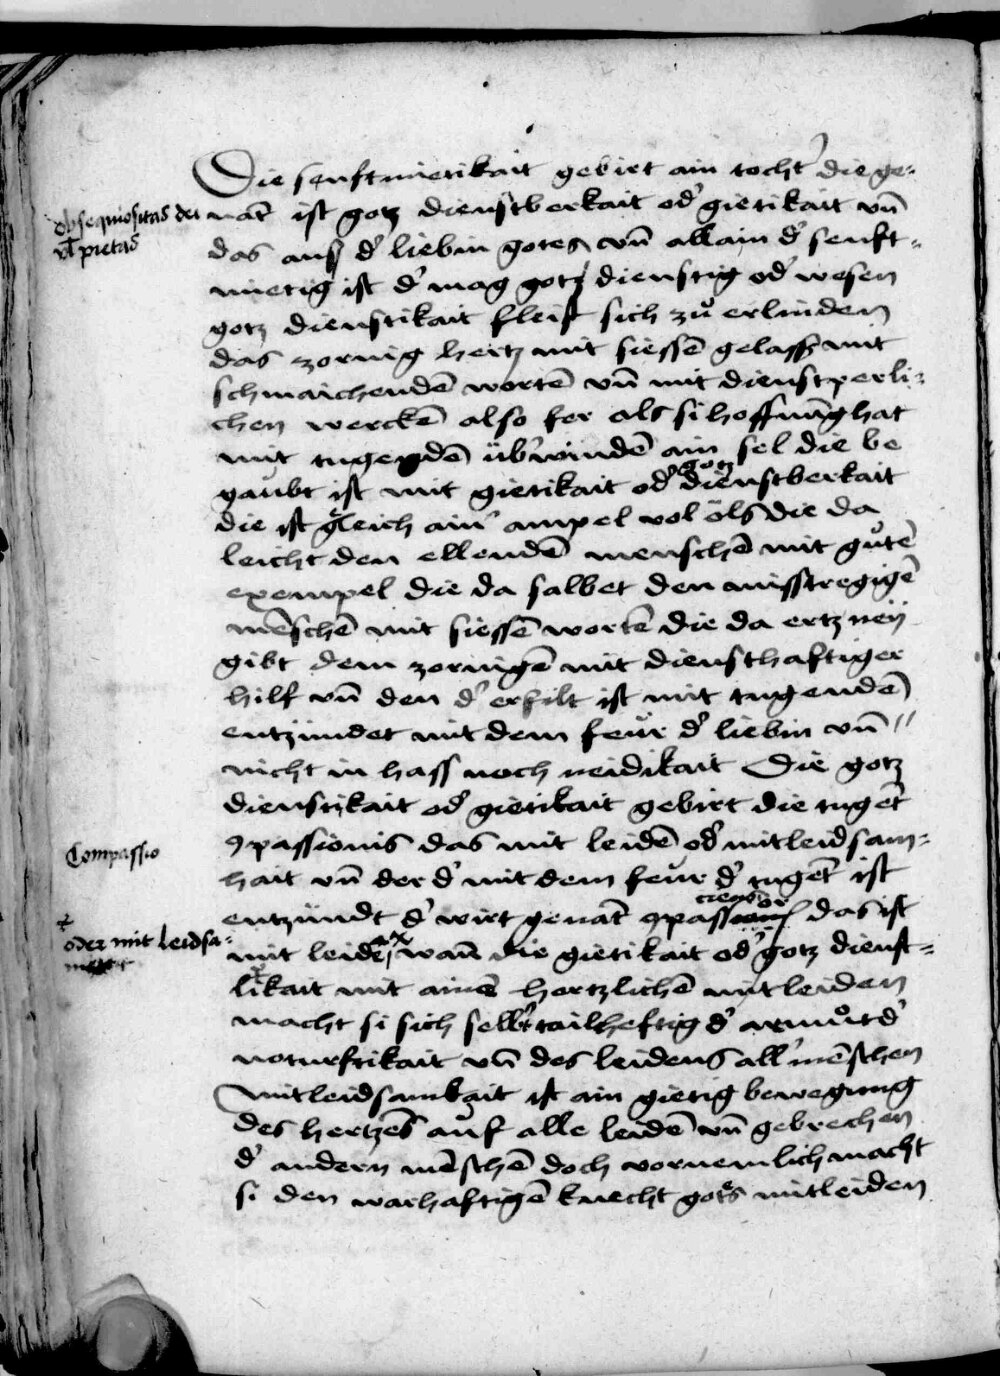 Die senftmietikait gebirt ain tocht' die ge-
obsequiositas dei
vl pietas
nāt ist gotz dienstberkait od' gietikait vn̄
das auß d' liebin gotes vn̄ allain d' senft-
mietig ist d' mag gotz dienstig od' wesen
gotz dienstikait fleist sich zů erlinden
das zornig hertz mit siessē gelass mit
schmaichendē wortē vn̄ mit dienstperli-
chen werckē also fer als si hoffnūg hat
mit tugendē üb'windē ain sel die be
gaubt ist mit gietikait od' gotz dienstberkait
die ist gleich ain' ampel vol öls die da
leicht den ellendē menschē mit gůtē
exempel die da salbet den misstregigē
mēschē mit siessē wortē die da ertzneij
gibt dem zornigē mit diensthaftiger
hilf vn̄ den d' erfilt ist mit tugendē
entzündet mit dem feür d' liebin vn̄
nicht in hass noch neidikait Die gotz
dienstikait od' gietikait gebirt die tugēt
Compassio
ꝯpassionis das mit leidē od' mitleidsam-
hait vn̄ der d' mit dem feur d' tugēt ist
entzündt d' wirt genāt ꝯpass das ist
oder mit leidsa-
mit leidē wan̄ die gietikait od' gotz dienst-
likait mit ainē hertzlichē mitleiden
macht si sich selb' tailheftig d' armůt d'
noturftikait vn̄ des leidens all' mēschen
mitleidsamkait ist ain gietig bewegung
des hertzēs auf alle leidē vn̄ gebrechen
d' andern mēschē doch vornemlich macht
si den warhaftigē knecht gots mitleiden